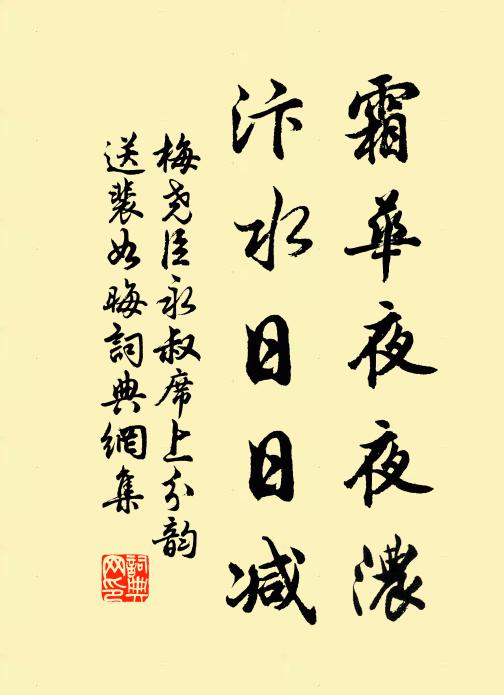 霜華夜夜濃
汴水日日减
梅尧臣永叔席上分韵
送裴如晦詞典網集
詞典
网印